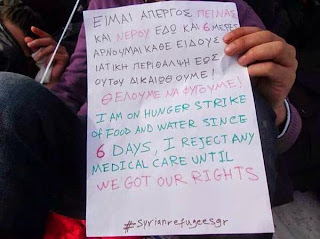 ΕΙΜΑΙ ΑΠΕΡΓΟΣ ΠΕΙΝΑΣ
ΚΑΙ ΝΕΡΟΥ ΕΔΩ ΚΑΙ 6 ΜΕΡΕΣ
ΑΡΝΟΥΜΑΙ ΚΑΘΕ ΕΙΔΟΥΣ
ΙΑΤΙΚΗ ΠΕΡΙΘΑΛΨΗ ΕΩΣ
ΟΥΤΟΥ ΔΙΚΑΙΩΘΟΥΜΕ!
ΘΕΛΟΥΜΕ ΝΑ ΦΥΓΟΥΜΕ!
I AM ON HUNGER STRIKE
OF FOOD AND WATER SINCE
6 DAYS, I REJECT ANY
MEDICAL CARE UNTIL
WE GOT OUR RIGHTS
#syrianrefugeesgr